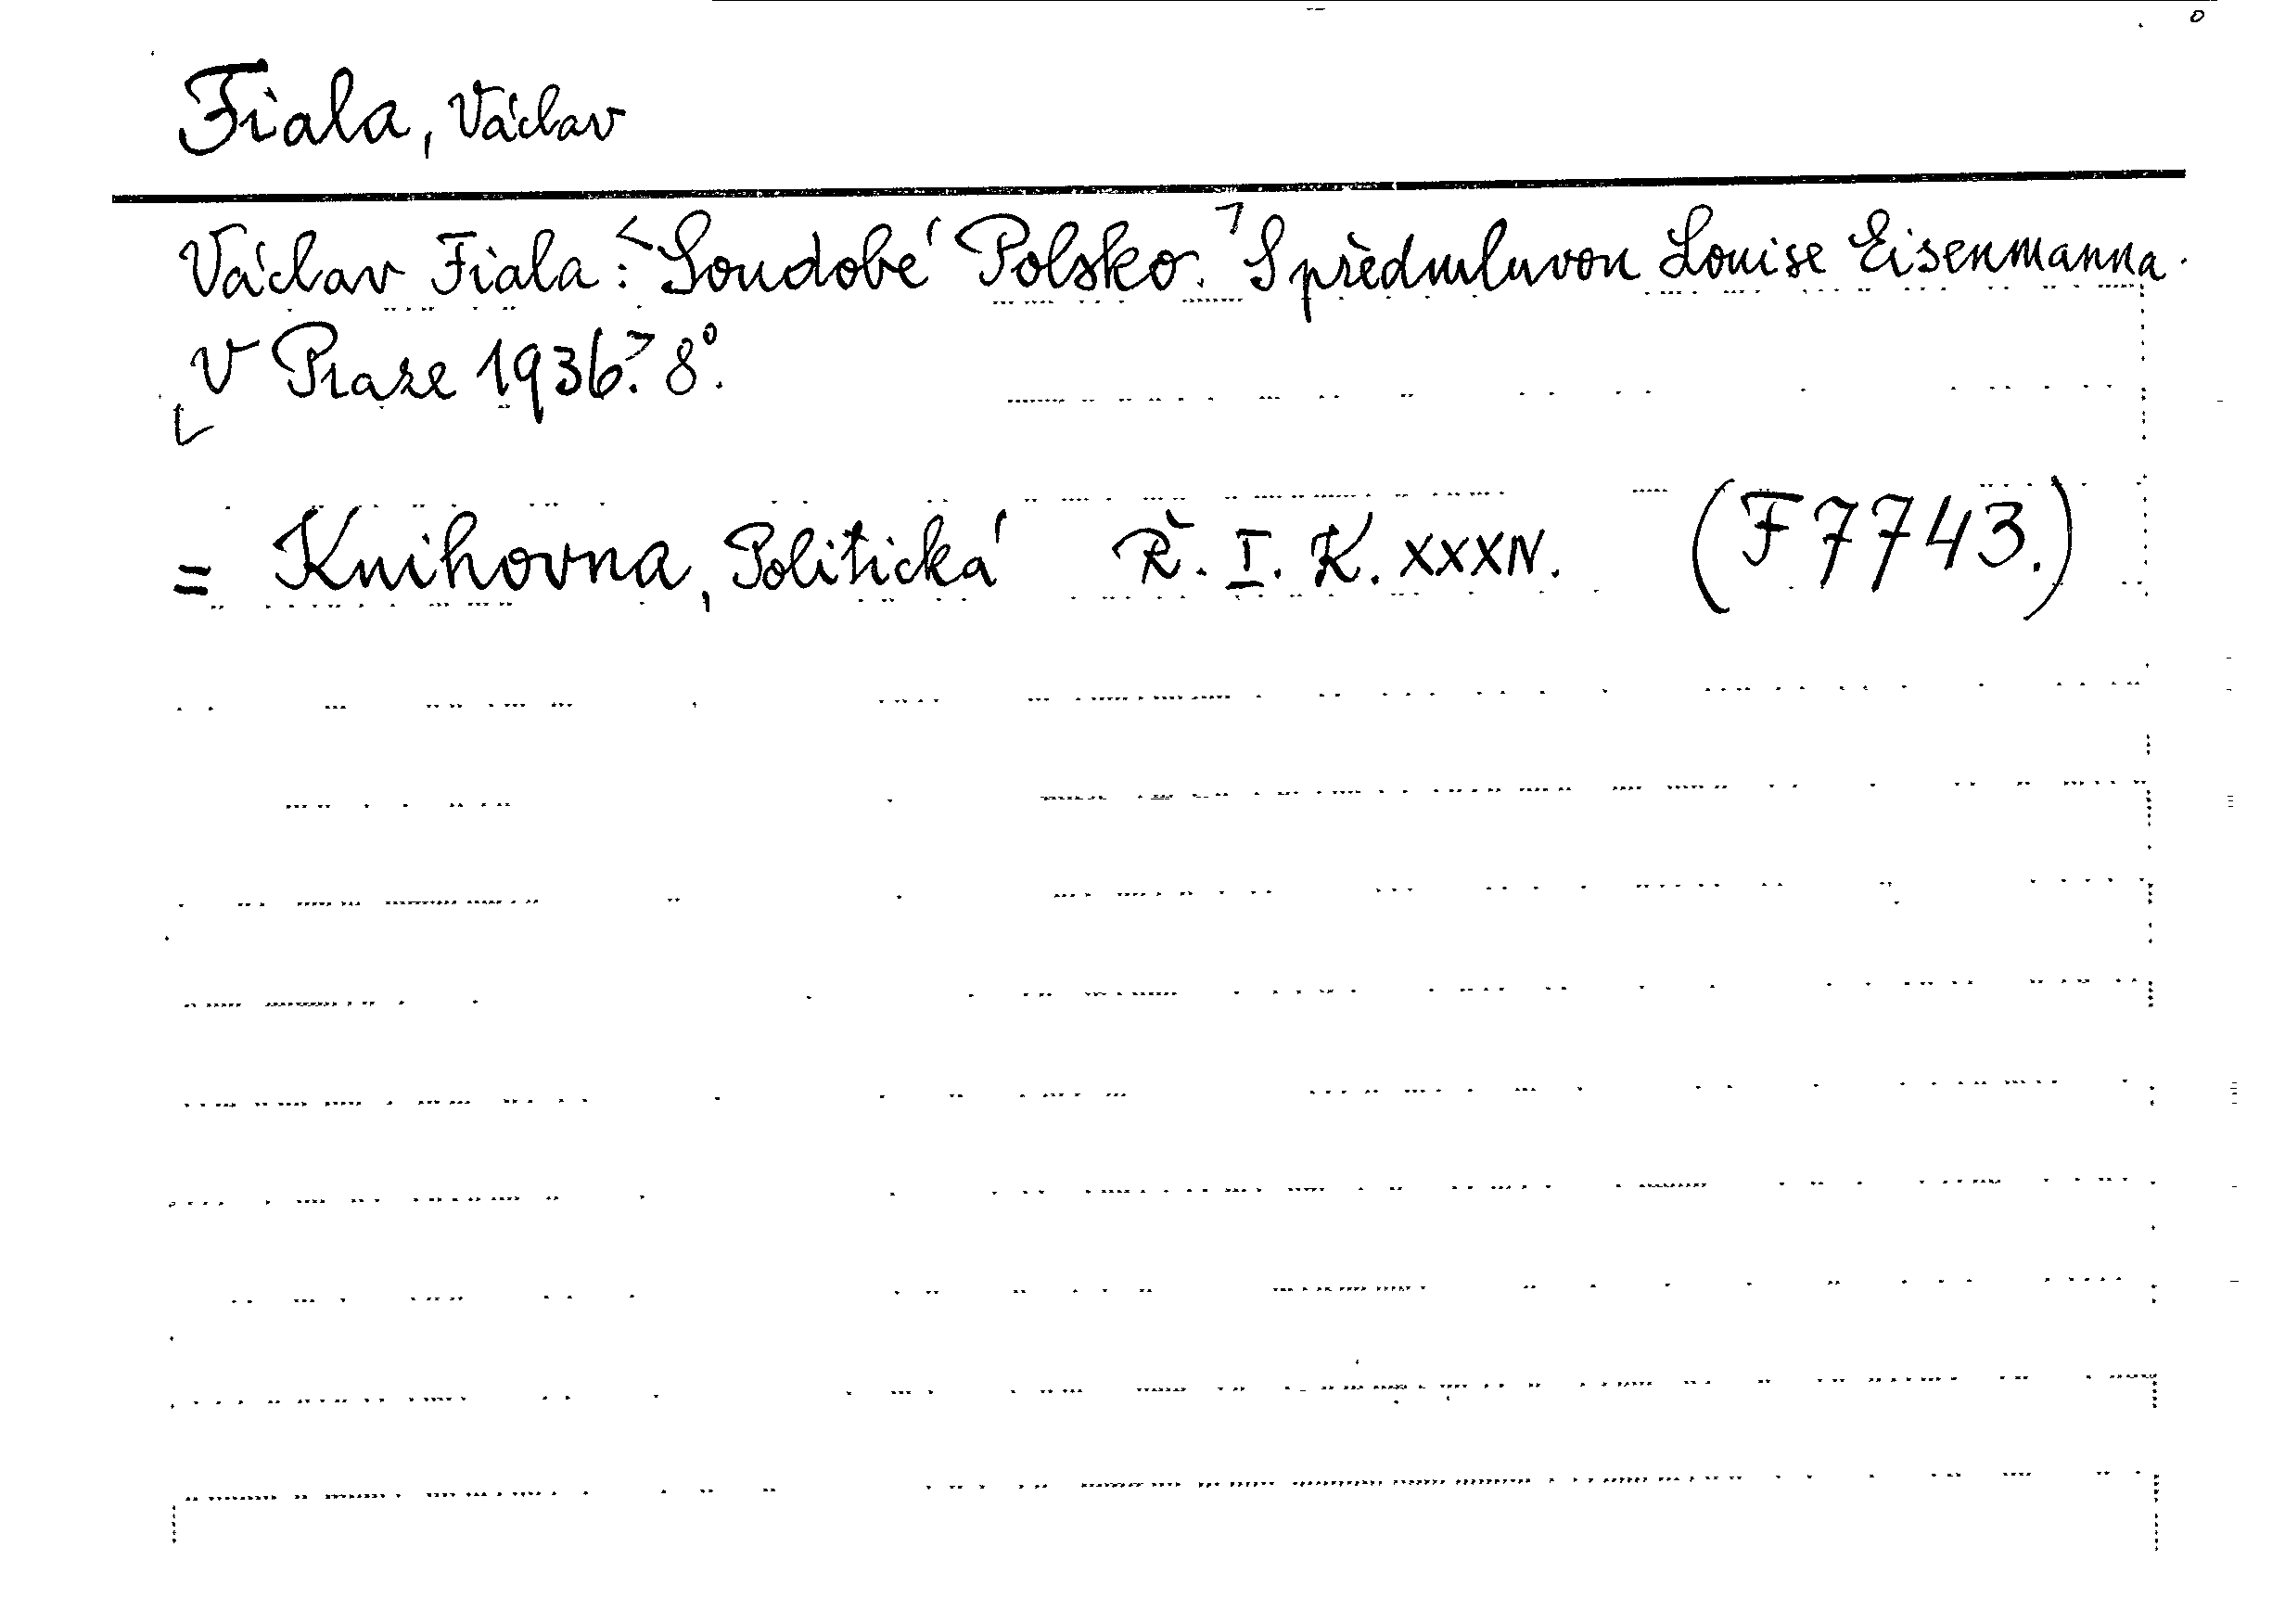 Fiala, Václav
Václav Fiala: <Soudobé Polsko.> S předmluvou Louise Eisenmanna.
<V Praze 1936.> 8°.
= Knihovna, Politická Ř. I. K. XXXIV. (F 7743.)